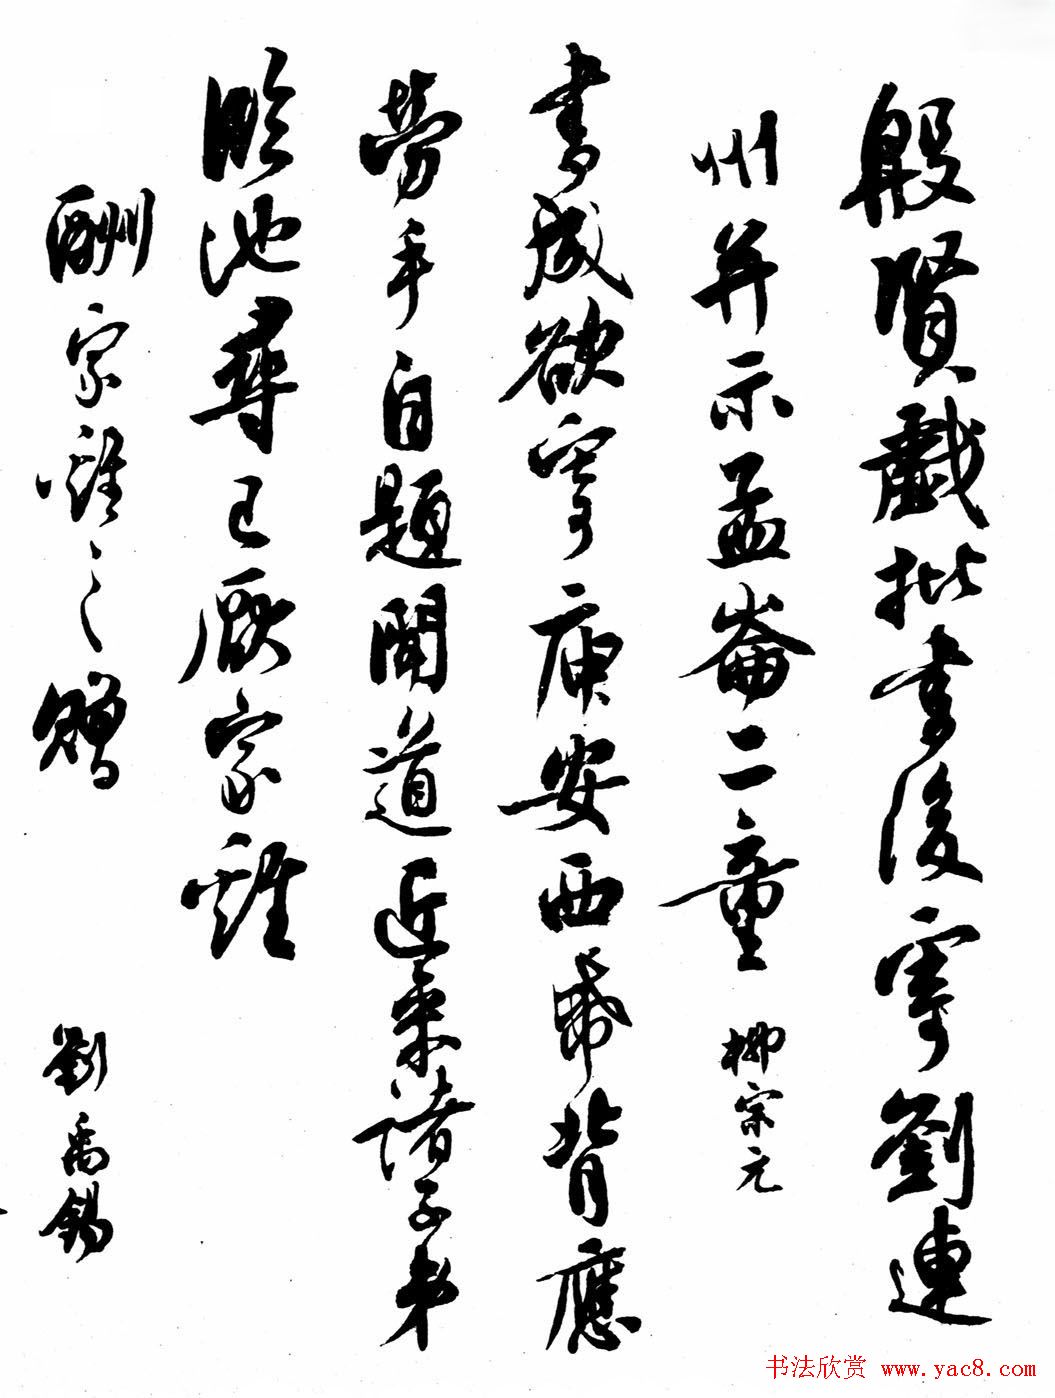 殷賢戲批書後寄劉連
州并示孟崙二童 柳宗元
書成欲寄庾安西帋背應
勞手自題聞道近來諸子弟
臨池尋已厭家雞
酬家雞之贈 劉禹錫
书法欣赏 www.yac8.com